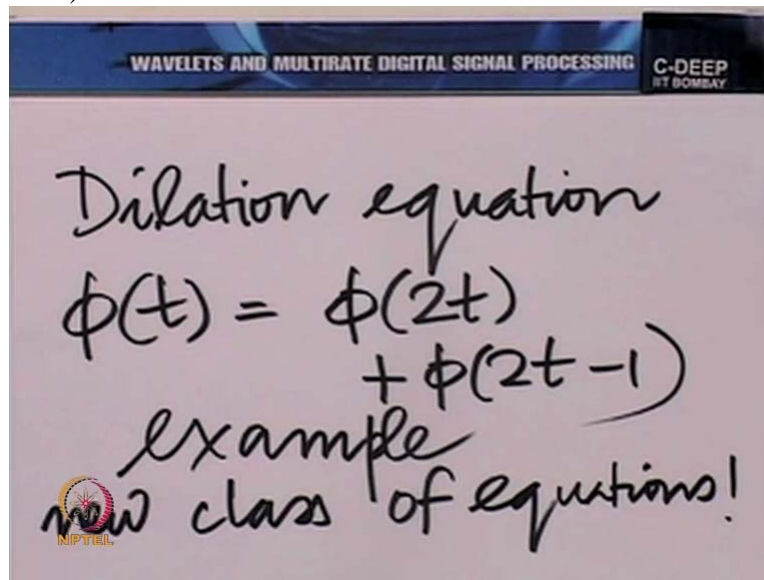 WAVELETS AND MULTIRATE DIGITAL SIGNAL PROCESSING
C-DEEP
IIT BOMBAY
Dilation equation
ϕ(t) = ϕ(2t)
+ ϕ(2t-1)
example
new class of equations!
NPTEL